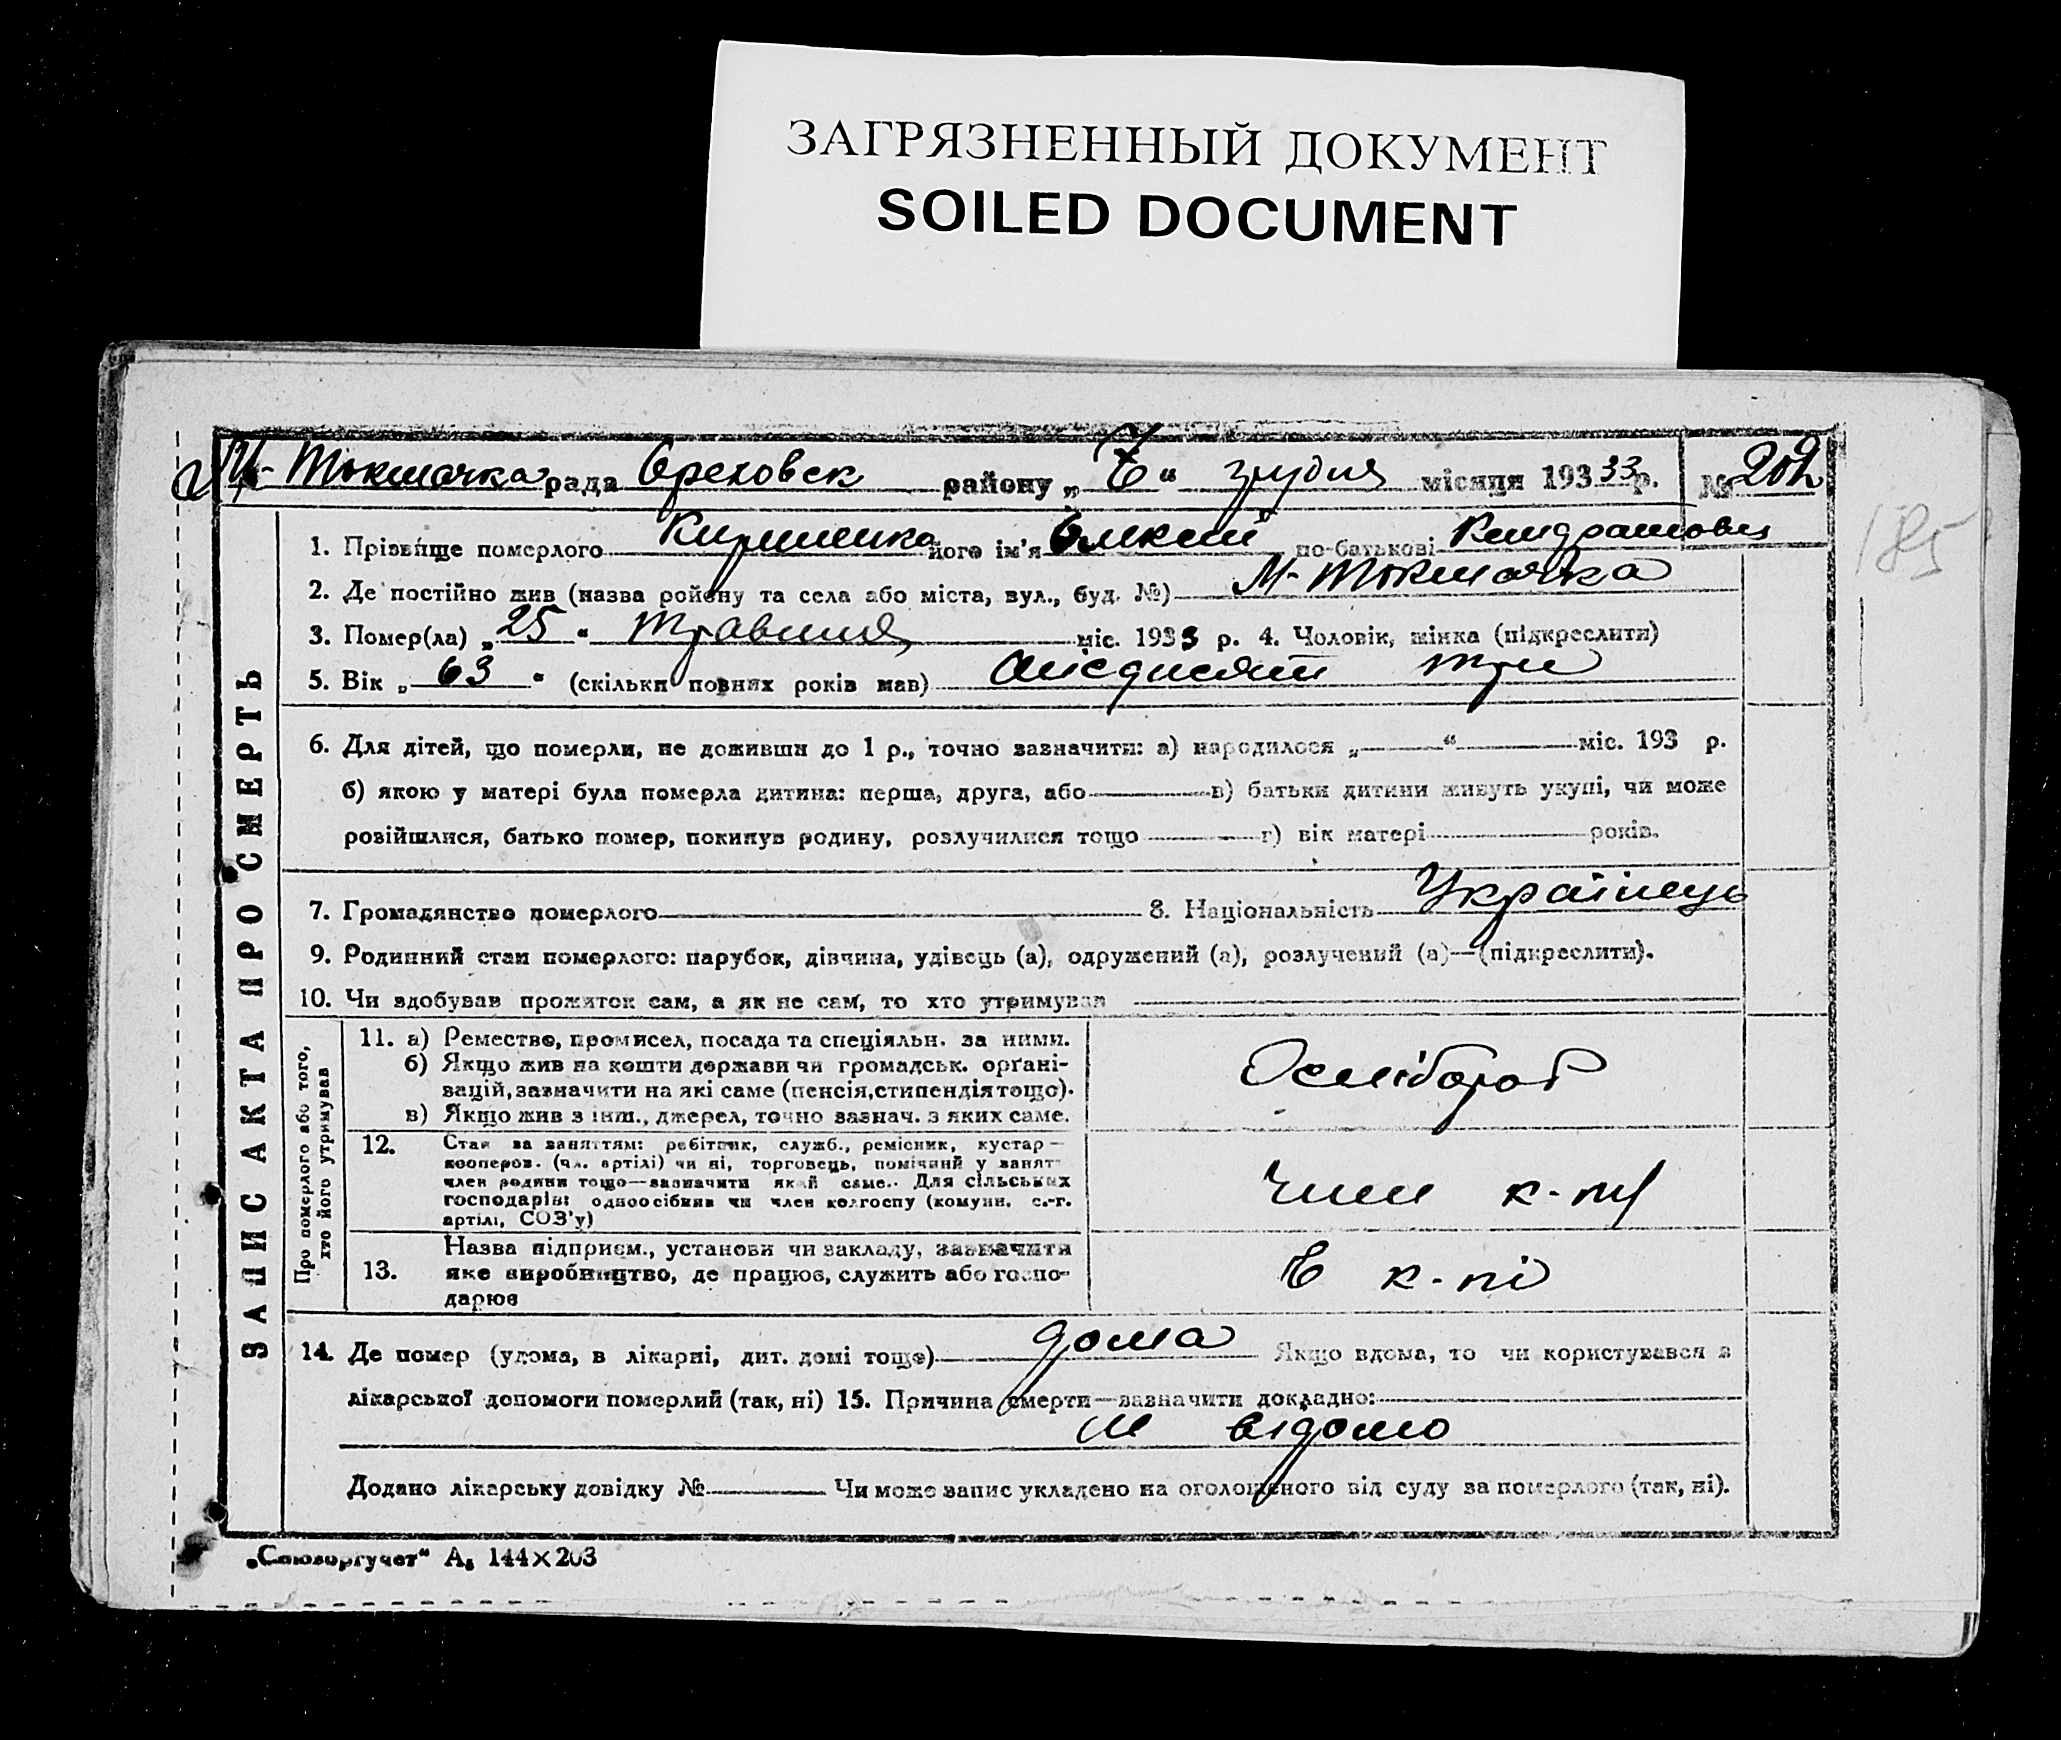 ЗАГРЯЗНЕННЫЙ ДОКУМЕНТ
SOILED DOCUMENT
М-Токмачка рада Ореховск району „ “ грудня місяця 193 33 р. № 202
185
ЗАПИС АКТА ПРО СМЕРТЬ
1. Прізвище померлого Кириченко його ім'я Олексій по-батькові Кондратович
2. Де постійно жив (назва району та села або міста, вул., буд. №) М-Токмачка
3. Помер(ла) „25“ травня міс. 1933 р. 4. Чоловік, жінка (підкреслити)
5. Вік „63“ (скільки повних років мав) шісдисят три
6. Для дітей, що померли, не доживши до 1 р., точно зазначити: а) народилося „ “ міс. 193 р.
б) якою у матері була померла дитина: перша, друга, або в) батьки дитини живуть укупі, чи може
розійшлися, батько помер, покинув родину, розлучилися тощо г) вік матері років.
7. Громадянство померлого 8. Національність Українець
9. Родинний стан померлого: парубок, дівчина, удівець (а), одружений (а), розлучений (а)—(підкреслити).
10. Чи здобував прожиток сам, а як не сам, то хто утримував
Про померлого або того, хто його утримував
11. а) Ремество, промисел, посада та спеціяльн. за ними.
б) Якщо жив на кошти держави чи громадськ. орґані-
зацій, зазначити на які саме (пенсія, стипендія тощо).
в) Якщо жив з інш., джерел, точно зазнач. з яких саме.
Хлібороб
12. Стан за заняттям: робітник, служб., ремісник, кустар—
кооперов. (чл. артілі) чи ні, торговець, помічний у занят-
член родини тощо—зазначити який саме. Для сільських
господарів: одноосібник чи член колгоспу (комуни, с.-г.
артілі, СОЗ'у)
член к-пу
13. Назва підприєм., установи чи закладу, зазначити
яке виробництво, де працює, служить або госпо-
дарює
В к-пі
14. Де помер (удома, в лікарні, дит. домі тоще) дома Якщо вдома, то чи користувався з
лікарської допомоги померлий (так, ні) 15. Причина смерти—зазначити докладно:
не відомо
Додано лікарську довідку № Чи може запис укладено на оголошеного від суду за померлого (так, ні).
„Союзоргучет“ А₅ 144×203